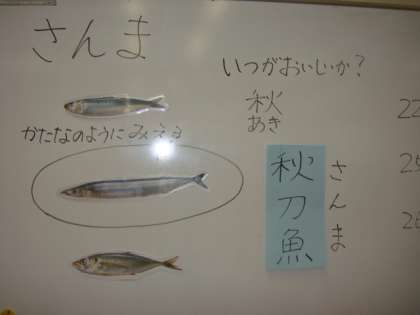 さんま
いつがおいしいか?
秋
あき
かたなのようにみえる
秋刀魚
さんま
22
25